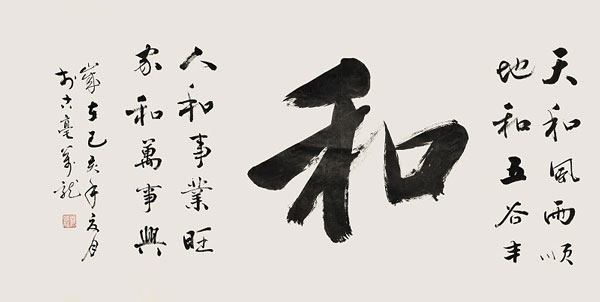 天和風雨順
地和五谷丰
和
人和事業旺
家和萬事興
歲在己亥年夏月
於古亳